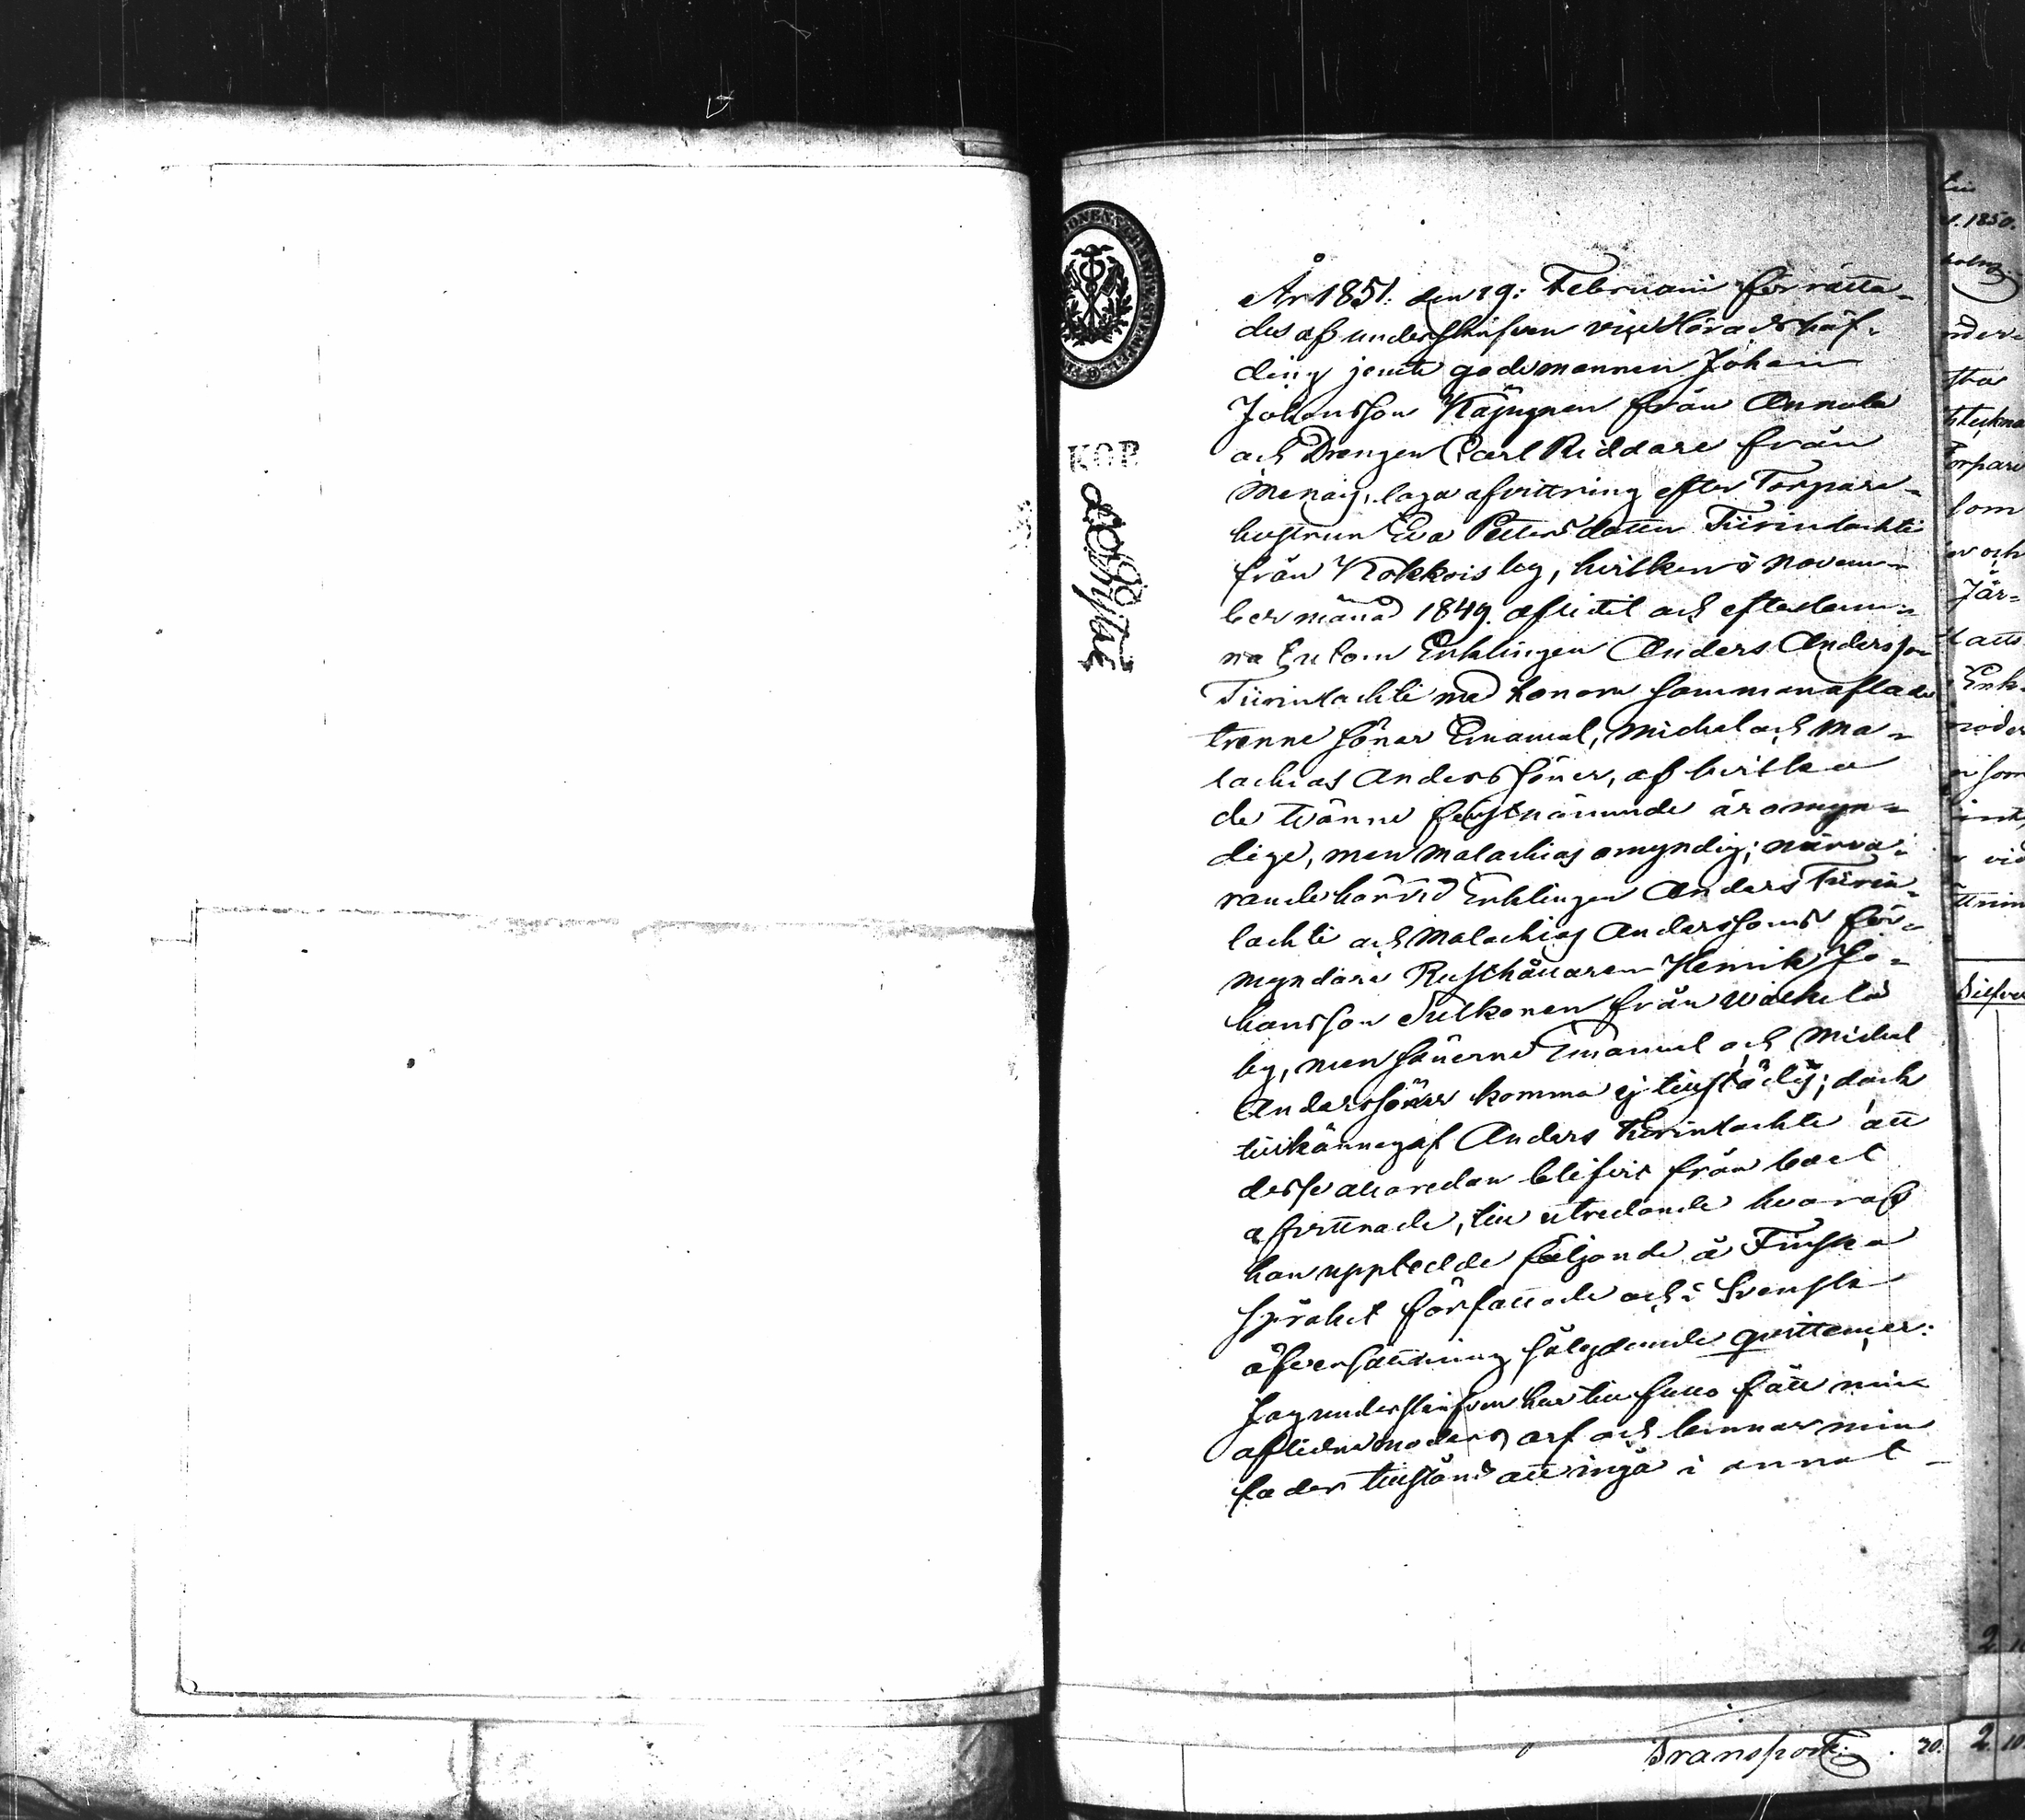 År 1851. den 19: Februarii förrätta-
des af underskrifven vice Häradshöf-
ding jemte godemännen Johan
Johansson Käjngnen från Annala
och Drengen Carl Riddare från
Menaig, laga afvittring efter Torpare-
hustrun Eva Pettersdotter Tiirinlachti
från Kokkois by, hvilken i Novem-
ber månad 1849. aflidit och efterlem-
nat Enklingen Anders Andersson
Tiirinlachti med honom sammanaflade
trenne söner Emanuel, Michel och Ma-
lachias Anderssöner, af hvilka
de tvänne förstnämnde äro myn-
dige, men Malachias omyndig; närva-
rande härvid Enklingen Anders Tiirin-
lachti och Malachias Anderssons för-
myndare Rusthållaren Henrik Jo-
hansson Sutkonen från Wäckelä
by, men sönerne Emanuel och Michel
Anderssöner komma ej tillstädes; dock
tillkännagaf Anders Tiirinlachti att
desse allaredan blifvit från boet
afvittrade, till utredande hvaraf
han uppteedde följande å Finska
språket författade och i Svensk
öfversättning sålydande qvittencer:
Jag underskrifven har till fullo fått min
aflidne moders arf och lemnar min
fader tillstånd att ingå i annat
KOP
Transport: 20. 2. 10
1850.
Torpare
som
och
Jär-
att
Enk-
moder
som
vid
Silfver
2. 10